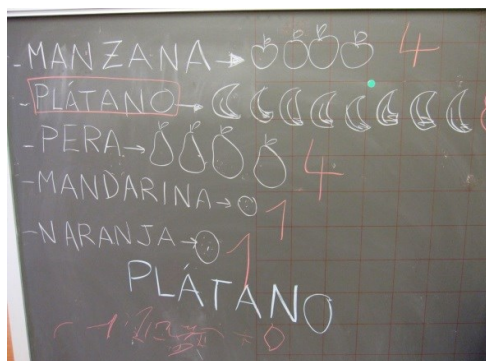 - MANZANA → 4
- PLÁTANO →
- PERA → 4
- MANDARINA → 1
- NARANJA → 1
PLÁTANO